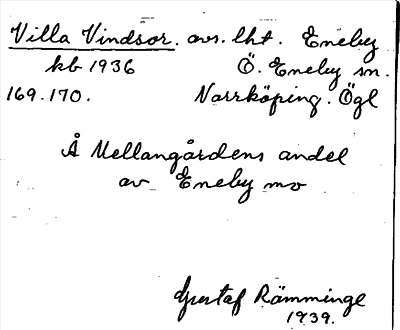 Villa Vindsor. avs. lht. Eneby
kb 1936 Ö. Eneby sn.
169.170. Norrköping. Ögl
Å Mellangårdens andel
av Eneby mo
Gustaf Rämminge
1939.